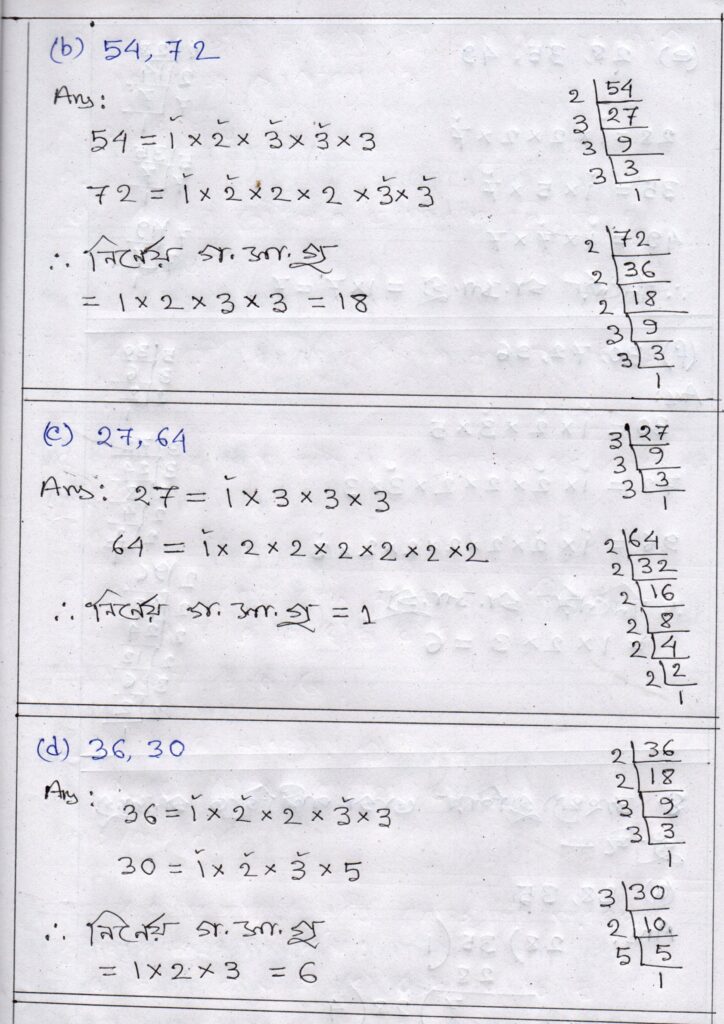 (b) 54, 72
Ans:
54 = 1 × 2 × 3 × 3 × 3
72 = 1 × 2 × 2 × 2 × 3 × 3
∴ নিৰ্নেয় গ.সা.গু
= 1 × 2 × 3 × 3 = 18
2 | 54
3 | 27
3 | 9
3 | 3
1
2 | 72
2 | 36
2 | 18
3 | 9
3 | 3
1
(c) 27, 64
Ans: 27 = 1 × 3 × 3 × 3
64 = 1 × 2 × 2 × 2 × 2 × 2 × 2
∴ নিৰ্নেয় গ.সা.গু = 1
3 | 27
3 | 9
3 | 3
1
2 | 64
2 | 32
2 | 16
2 | 8
2 | 4
2 | 2
1
(d) 36, 30
Ans:
36 = 1 × 2 × 2 × 3 × 3
30 = 1 × 2 × 3 × 5
∴ নিৰ্নেয় গ.সা.গু
= 1 × 2 × 3 = 6
2 | 36
2 | 18
3 | 9
3 | 3
1
3 | 30
2 | 10
5 | 5
1